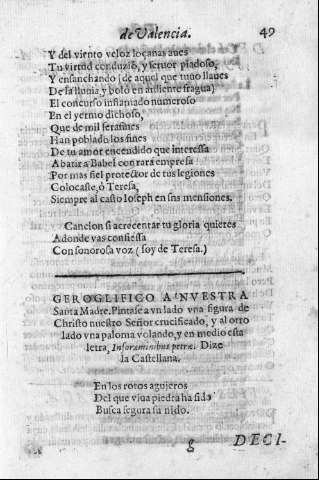 de Valencia. 49
Y del viento veloz loçanas aues
Tu virtud conduziò, y feruor piadoso,
Y ensanchando (de aquel que tuuo llaues
De la lluuia, y bolò en ardiente fragua)
El concurso inflamado numeroso
En el yermo dichoso,
Que de mil serafines
Han poblado los fines
De tu amor encendido que interessa
Abatir a Babel con rara empresa
Por mas fiel protector de tus legiones
Colocaste, ò Teresa,
Siempre al casto Ioseph en sus mensiones.
Cancion si acrecentar tu gloria quieres
Adonde vas confiessa
Con sonorosa voz (soy de Teresa.)
GEROGLIFICO A NVESTRA
Santa Madre. Pintase a vn lado vna figura de
Christo nuestro Señor crucificado, y al otro
lado vna paloma volando, y en medio esta
letra, Inforaminibus petræ. Dize
la Castellana.
En los rotos agujeros
Del que viua piedra ha sido
Busca segura su nido.
g DECI-